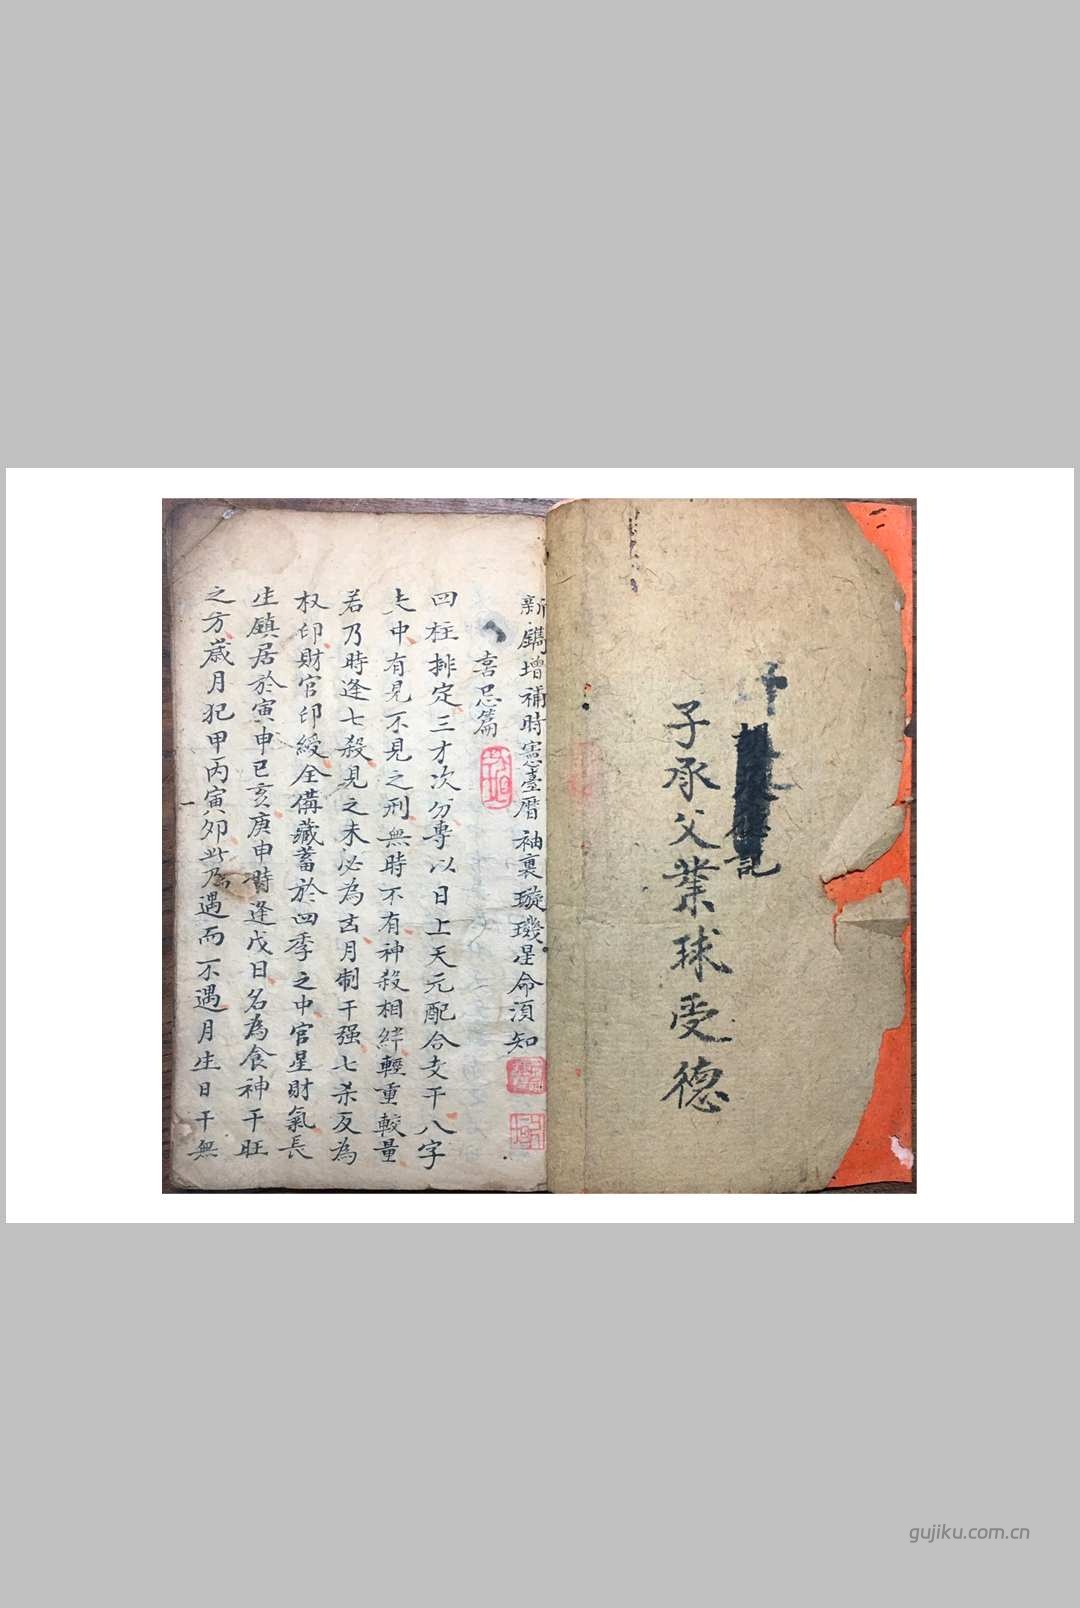 記
子承父業球受德
新鐫增補時憲臺曆袖裏璇璣星命須知
喜忌篇
四柱排定三才次分專以日上天元配合支干八字
中有見不見之刑無時不有神殺相絆輕重較量
若乃時逢七殺見之未必為凶月制干强七杀反為
权印財官印綬全俻藏蓄於四季之中官星財氣長
生鎮居於寅申巳亥庚申時逢戊日名為食神干旺
之方歲月犯甲丙寅夘此乃遇而不遇月生日干無
gujiku.com.cn